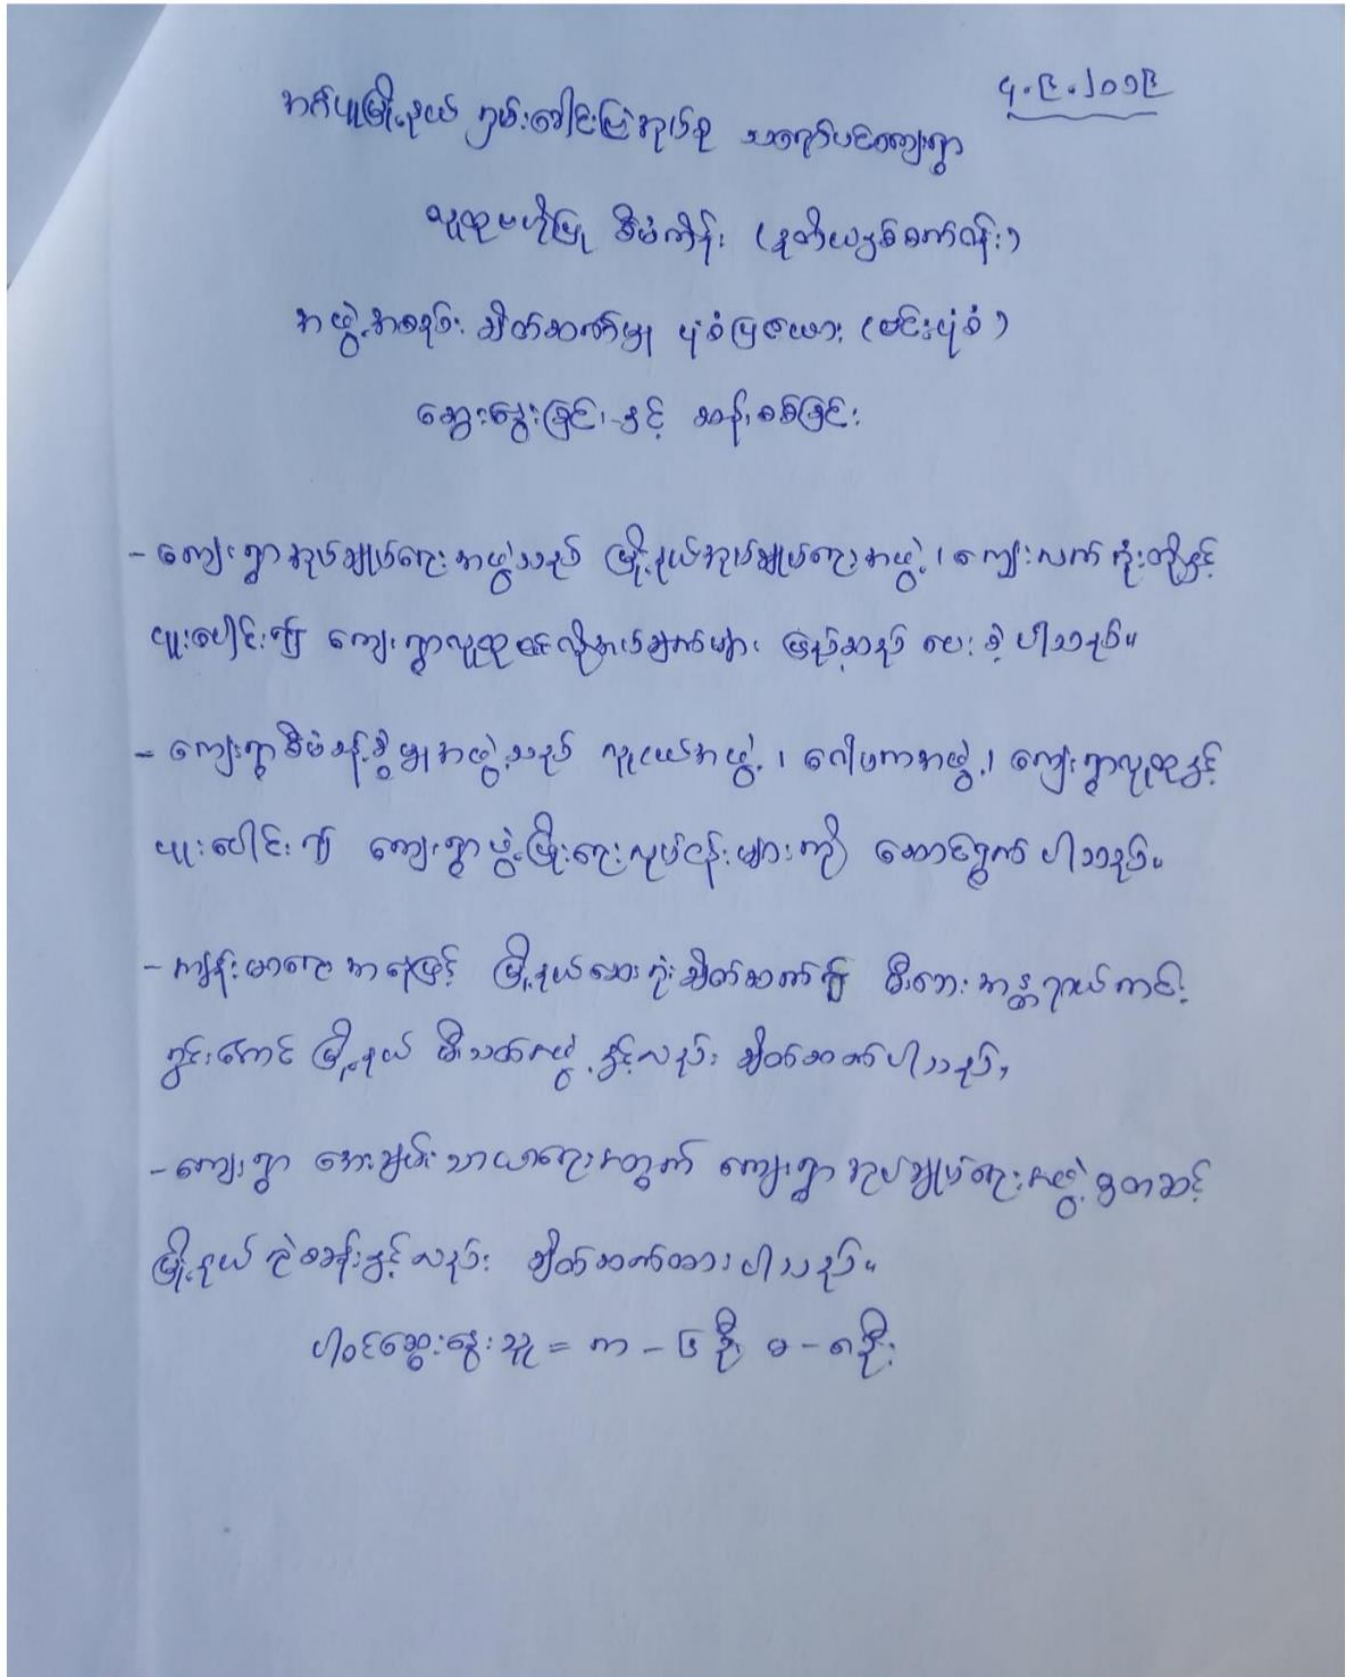 ၄.၉.၂၀၁၉
အင်္ဂပူမြို့နယ် ကွမ်းခေါင်းပြဲအုပ်စု သရက်ပင်ကျေးရွာ
လူထုဗဟိုပြု စီမံကိန်း (ဒုတိယနှစ်စက်ဝန်း)
အဖွဲ့အစည်း ချိတ်ဆက်မှု ပုံစံပြဇယား (ဗင်းပုံစံ)
ဆွေးနွေးခြင်းနှင့် ဆန်းစစ်ခြင်း
- ကျေးရွာအုပ်ချုပ်ရေးအဖွဲ့သည် မြို့နယ်အုပ်ချုပ်ရေးအဖွဲ့၊ ကျေးလက်ဦးတို့နှင့်
ပူးပေါင်း၍ ကျေးရွာလူထု၏လိုအပ်ချက်များ ဖြည့်ဆည်းပေးခဲ့ပါသည်။
- ကျေးရွာစီမံခန့်ခွဲမှုအဖွဲ့သည် လူငယ်အဖွဲ့၊ ဂေါပကအဖွဲ့၊ ကျေးရွာလူထုနှင့်
ပူးပေါင်း၍ ကျေးရွာဖွံ့ဖြိုးရေးလုပ်ငန်းများကို ဆောင်ရွက်ပါသည်။
- ကျန်းမာရေးအနေဖြင့် မြို့နယ်ဆေးရုံးချိတ်ဆက်၍ မီးဘေးအန္တရာယ်ကင်း
ရှင်းအောင် မြို့နယ် မီးသတ်အဖွဲ့နှင့်လည်း ချိတ်ဆက်ပါသည်။
- ကျေးရွာ အေးချမ်းသာယာရေးအတွက် ကျေးရွာအုပ်ချုပ်ရေးအဖွဲ့မှတဆင့်
မြို့နယ်ရဲစခန်းနှင့်လည်း ချိတ်ဆက်ထားပါသည်။
ပါဝင်ဆွေးနွေးသူ = ကျ - ၆ ဦး မ - ၈ ဦး